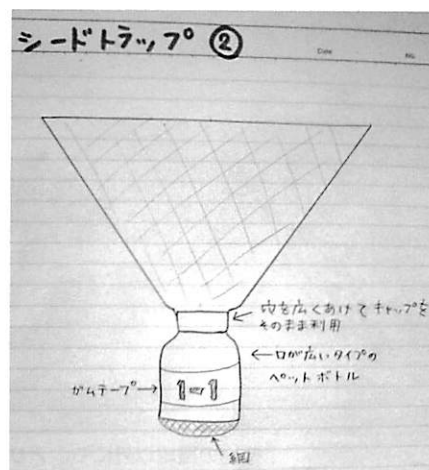 シードトラップ ②
Date
No.
穴を広くあけてキャップを
そのまま利用
口が広いタイプの
ペットボトル
ガムテープ
1-1
網